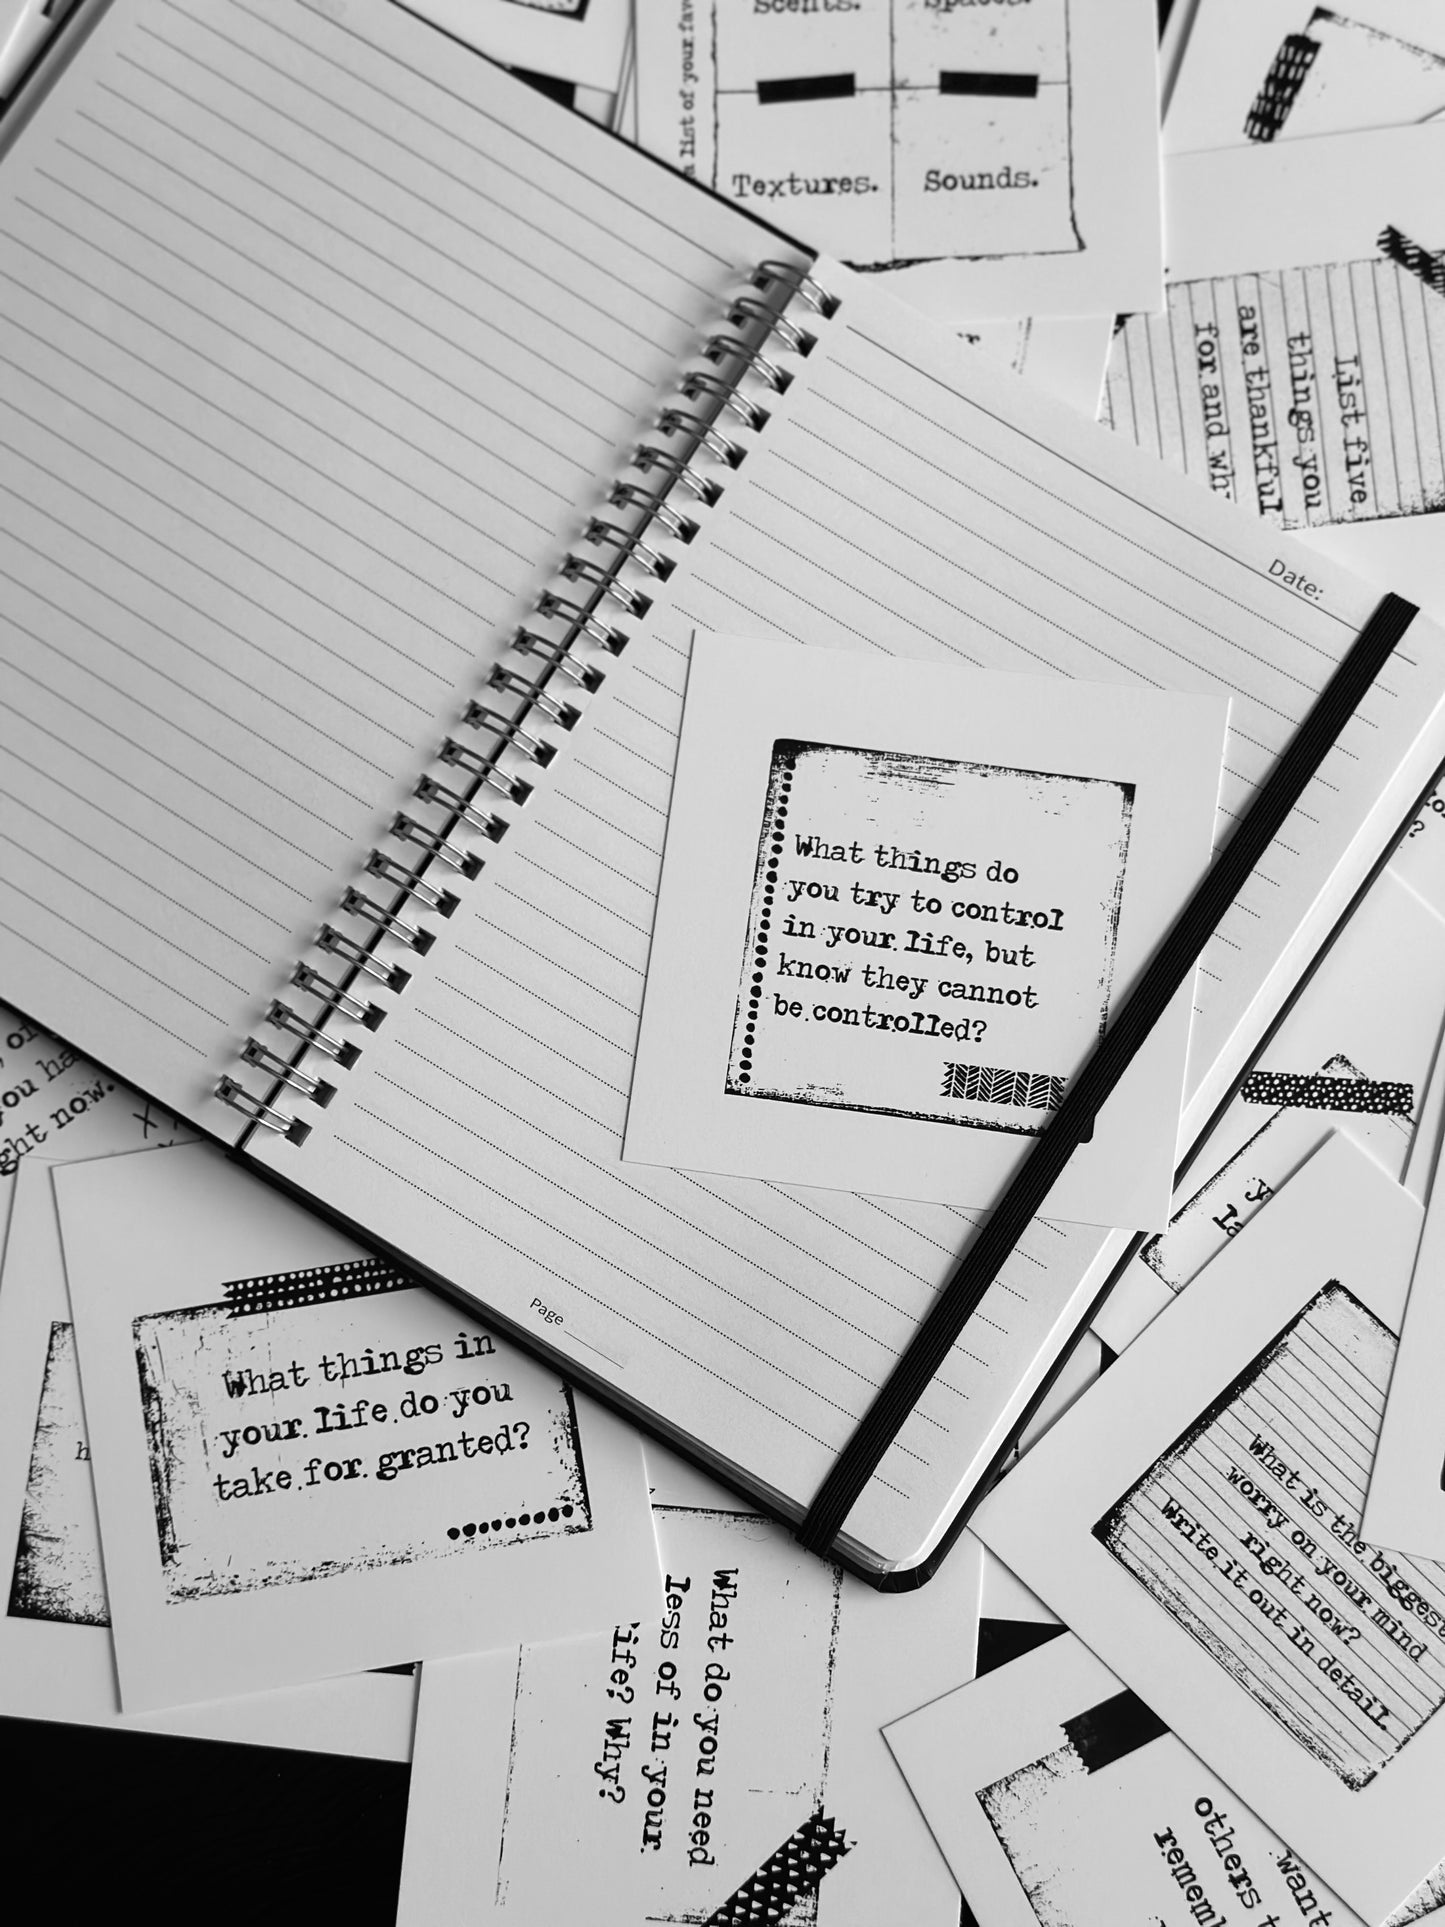 Scents.
Spaces.
a list of your fav
Textures.
Sounds.
List five
things you
are thankful
for and why
Date:
What things do
you try to control
in your life, but
know they cannot
be controlled?
you ha
ght now.
Page
What things in
your life do you
take for granted?
What is the biggest
worry on your mind
right now?
Write it out in detail.
What do you need
less of in your
life? Why?
want
others
remem